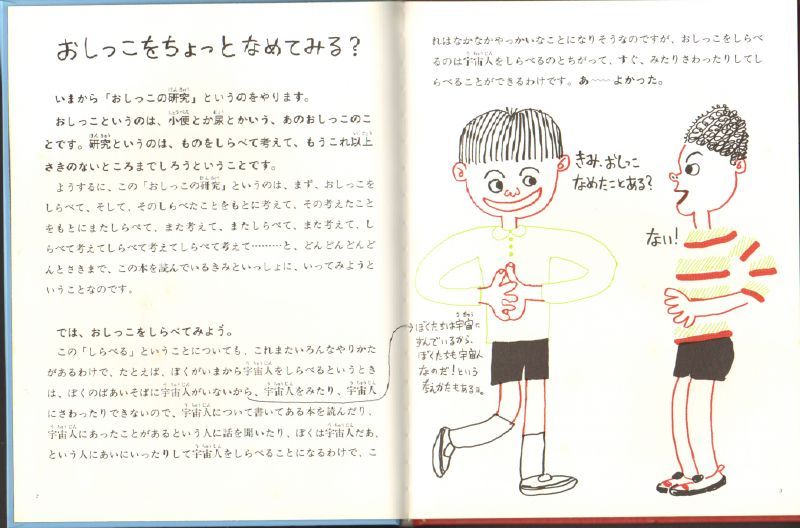 おしっこをちょっとなめてみる?
いまから「おしっこの研究」というのをやります。
おしっこというのは、小便とか尿とかいう、あのおしっこのこ
とです。研究というのは、ものをしらべて考えて、もうこれ以上
さきのないところまでしろうということです。
ようするに、この「おしっこの研究」というのは、まず、おしっこを
しらべて、そして、そのしらべたことをもとに考えて、その考えたこと
をもとにまたしらべて、また考えて、またしらべて、また考えて、し
らべて考えてしらべて考えてしらべて考えて………と、どんどんどんど
んとさきまで、この本を読んでいるきみといっしょに、いってみようと
いうことなのです。
では、おしっこをしらべてみよう。
この「しらべる」ということについても、これまたいろんなやりかた
があるわけで、たとえば、ぼくがいまから宇宙人をしらべるというとき
は、ぼくのばあいそばに宇宙人がいないから、宇宙人をみたり、宇宙人
にさわったりできないので、宇宙人について書いてある本を読んだり、
宇宙人にあったことがあるという人に話を聞いたり、ぼくは宇宙人だあ、
という人にあいにいったりして宇宙人をしらべることになるわけで、こ
2
れはなかなかやっかいなことになりそうなのですが、おしっこをしらべ
るのは宇宙人をしらべるのとちがって、すぐ、みたりさわったりしてし
らべることができるわけです。あ〜〜よかった。
きみ、おしっこ
なめたことある?
ない!
ぼくたちは宇宙に
すんでいるから、
ぼくたちも宇宙人
なのだ!という
かんがえかたもある。
3